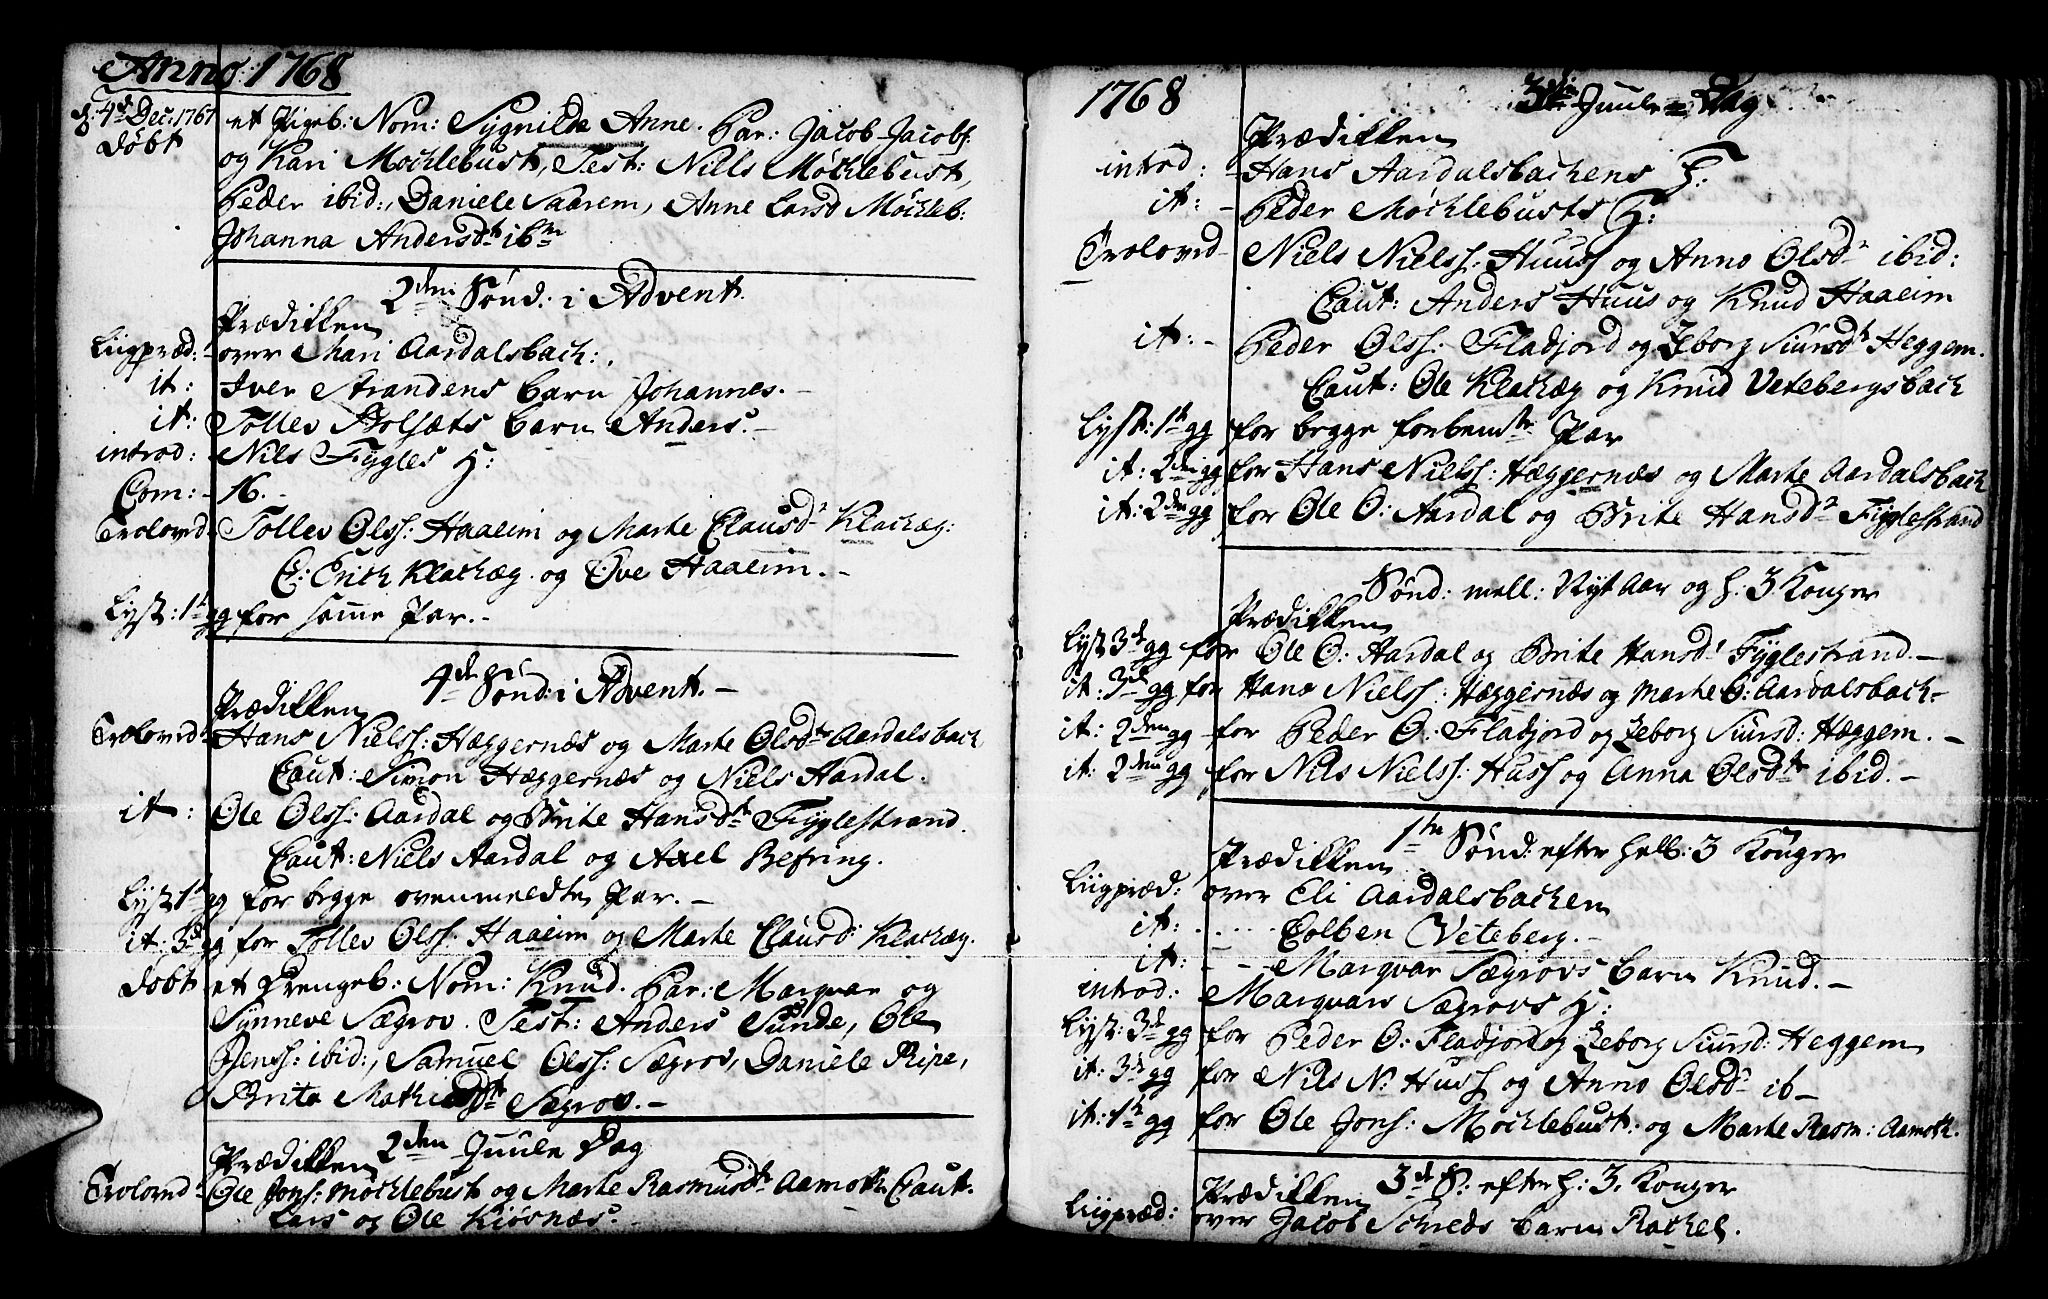 Anno: 1768
d: 4de Dec: 1767 et Pigeb: Nom: Sygnilde Anne. Par: Jacob Jacobs:
døbt og Kari Mochlebust, Test: Niels Möchlebust,
Peder ibid:, Daniele Saarem, Anne Larsd Möchleb:
Johanna Andersdtr ibm
2den Sønd: i Advent.
Prædikken
Liigpræd: over Mari Aardalsbach:.
it: Iver Strandens barn Johannes.-
it: Tollev Bolsæts barn Anders.-
introd: Nils Fygles H:
Com:- 16.-
Trolovd Tollev Olss: Haaeim og Marte Clausdr Klachæg:
C: Erich Klachæg og Ove Haaeim.-
Lyst: 1te gg for samme Par.-
4de Sønd: i Advent.-
Prædikken
Trolovd Hans Nielss: Hæggernæs og Marte Olsdtr Aardalsbach
Caut: Simon Hæggernæs og Niels Aardal.
it: Ole Olss: Aardal og Brite Hansdtr Fyglestrand.
Caut: Niels Aardal og Axel Befring.
Lyst 1te gg for begge ovenmeldte Par.-
it: 3de gg for Tollev Olss: Haaeim og Marte Clausd: Klachæg.
døbt et Drengeb: Nom: Knud. Par: Marqvar og
Synneve Sægrov. Test: Anders Sunde, Ole
Jenss: ibid:, Samuel Olss: Sægrov, Daniele Ripe,
Brita Mathiædtr Sægrov.-
2den Juule Dag
Prædikken
Trolovd Ole Jons: Möchlebust og Marte Rasmusdtr Aamoth Caut.
Lars og Ole Kiösnæs.
1768 3die Juule-Dag
Prædikken
introd: Hans Aardalsbachens H:
it:- Peder Mochlebusts H:
Trolovd Niels Nielss: Huuss og Anno Olsdr ibid:
Caut: Anders Huus og Knud Haaeim
it:- Peder Olss: Fladjord og Zeborg Siursdtr Heggem.
Caut: Ole Klachæg og Knud Vetebergsbach
Lyst: 1te gg for begge forbemte Par
it: 2den gg for Hans Nielss: Hæggernæs og Marte Aardalsbach
it: 2den gg for Ole O: Aardal og Brite Hansdr Figglestrand
Sønd: mell: Nyt Aar og h. 3 Konger
Prædikken
Lyst 3de gg for Ole O: Aardal og Brite Hansdr Fyglestrand.-
it: 3de gg for Hans Nielss: Hæggernæs og Marte O: Aardalsbach-
it: 2den gg for Peder O: Fladjord og Zeborg Siursd: Hæggem.-
it: 2den gg for Nils Nielss: Huss og Anna Olsdtr ibid.-
1ste Sønd: efter hell: 3 Konger
Prædikken
Liigpræd: over Eli Aardalsbachen
it: ..... Colben Veteberg.-
it: - - Marqvar Sægrovs barn Knud.-
introd: Marqvars Sægrovs H:
Lyst: 3de gg for Peder O: Fladjord og Zeborg Siursd: Heggem
it: 3de gg for Nils N: Huss og Anno Olsdr ib-
it: 1te gg for Ole Jons: Mochlebust: og Marte Rasm: Aamoth.
3de S: efter h: 3. Konger
Prædikken
Liigpræd: over Jacob Schreds barn Rachel.